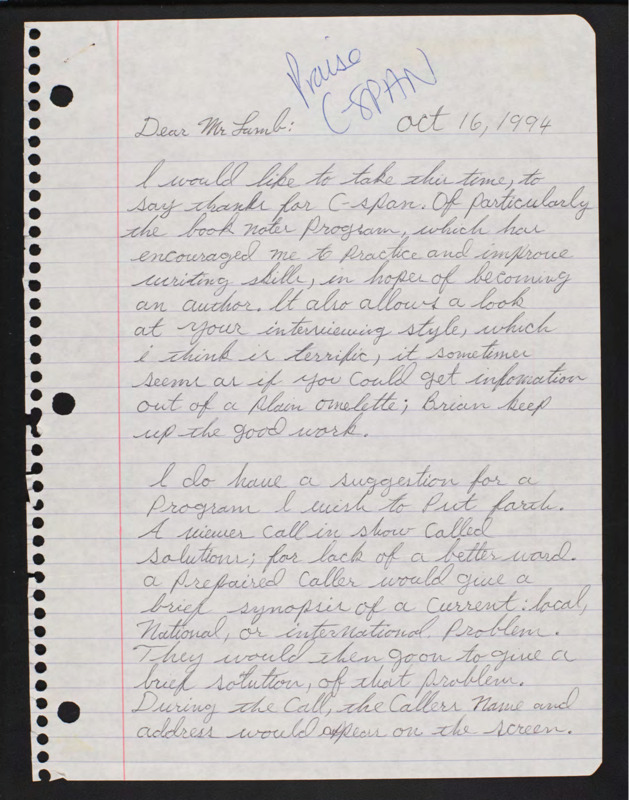 Praise
C-SPAN
Dear Mr Lamb: Oct 16, 1994
I would like to take this time, to
say thanks for C-span. Of particularly
the book notes Program, which has
encouraged me to Practice and improve
writing skills, in hopes of becoming
an author. It also allows a look
at your interviewing style, which
i think is terrific, it sometimes
seems as if you Could get infomation
out of a Plain omelette; Brian keep
up the good work.
I do have a suggestion for a
Program I wish to Put forth.
A viewer Call in show Called
solutions; for lack of a better word.
a Prepaired Caller would give a
brief synopsis of a Current: local,
National, or international Problem.
They would then go on to give a
brief solution, of that problem.
During the Call, the Callers Name and
address would appear on the screen.